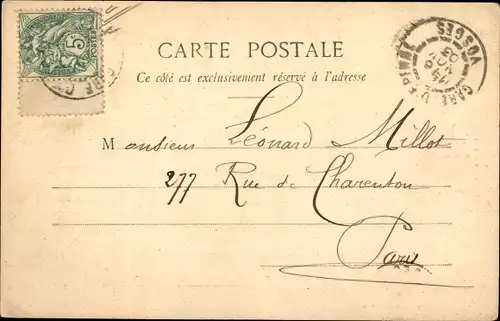 CARTE POSTALE
Ce côté est exclusivement réservé à l'adresse
5
POSTES
GARE D'EPINAL
VOSGES
Monsieur Léonard Millot
277 Rue de Charenton
Paris